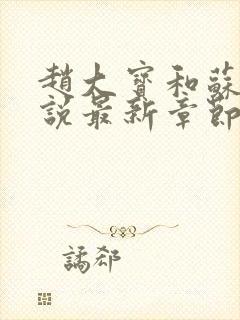 趙大寶和蘇
說最新章節
譎郄